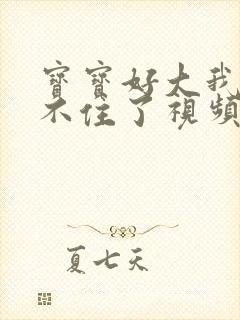 寶寶好大我
不住了視頻
夏七天